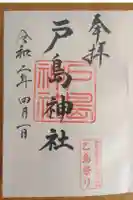 奉拝
戸島神社
令和二年四月一日
乙島祭り